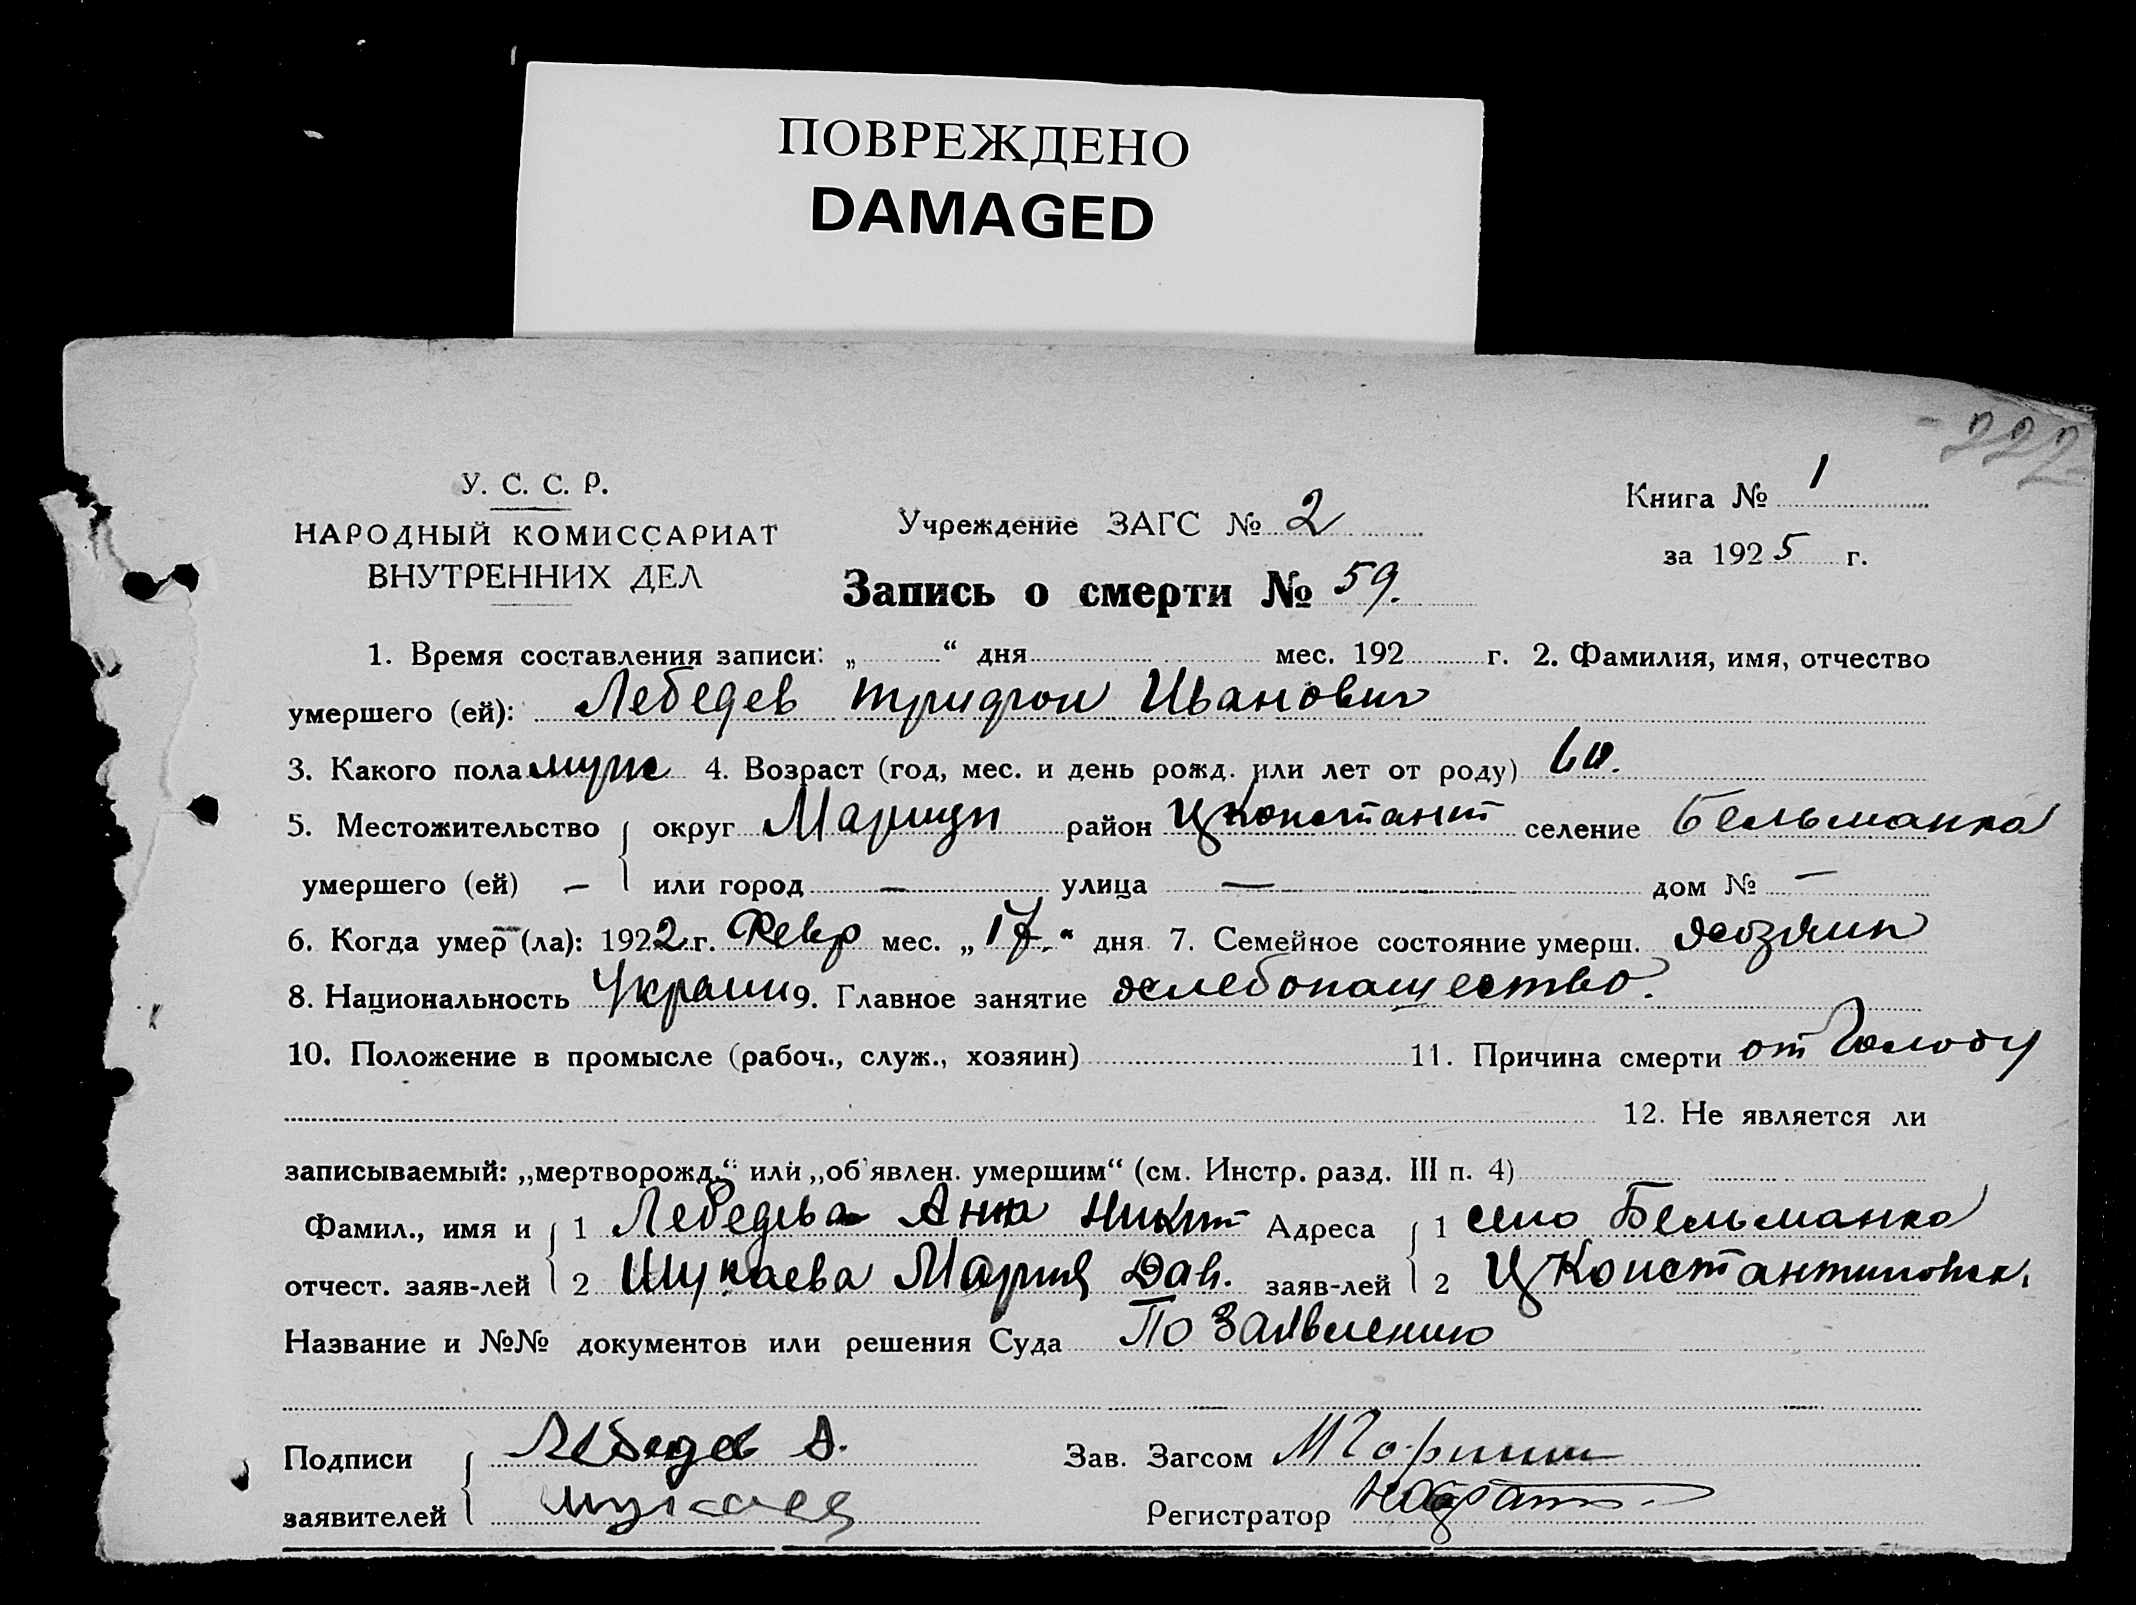 ПОВРЕЖДЕНО
DAMAGED
222
У. С. С. Р.
НАРОДНЫЙ КОМИССАРИАТ
ВНУТРЕННИХ ДЕЛ
Учреждение ЗАГС № 2
Книга № 1
за 1925 г.
Запись о смерти № 59.
1. Время составления записи: „ “ дня мес. 192 г. 2. Фамилия, имя, отчество
умершего (ей): Лебедев Трифон Иванович
3. Какого пола муж 4. Возраст (год, мес. и день рожд. или лет от роду) 60.
5. Местожительство округ Мариуп район Цконстант селение Бельманка
умершего (ей) — или город — улица — дом № —
6. Когда умер (ла): 1922 г. Февр мес. „17“ дня 7. Семейное состояние умерш. хозяин
8. Национальность Украин 9. Главное занятие хлебопашество.
10. Положение в промысле (рабоч., служ., хозяин) 11. Причина смерти от Голоду
12. Не является ли
записываемый: „мертворожд.“ или „об'явлен. умершим“ (см. Инстр. разд. III п. 4)
Фамил., имя и 1 Лебедева Анна Никит Адреса 1 село Бельманка
отчест. заяв-лей 2 Шукаева Мария Дав. заяв-лей 2 ЦКонстантиновск.
Название и №№ документов или решения Суда По Заявлению
Подписи Лебедев А. Зав. Загсом
заявителей Шукаев Регистратор